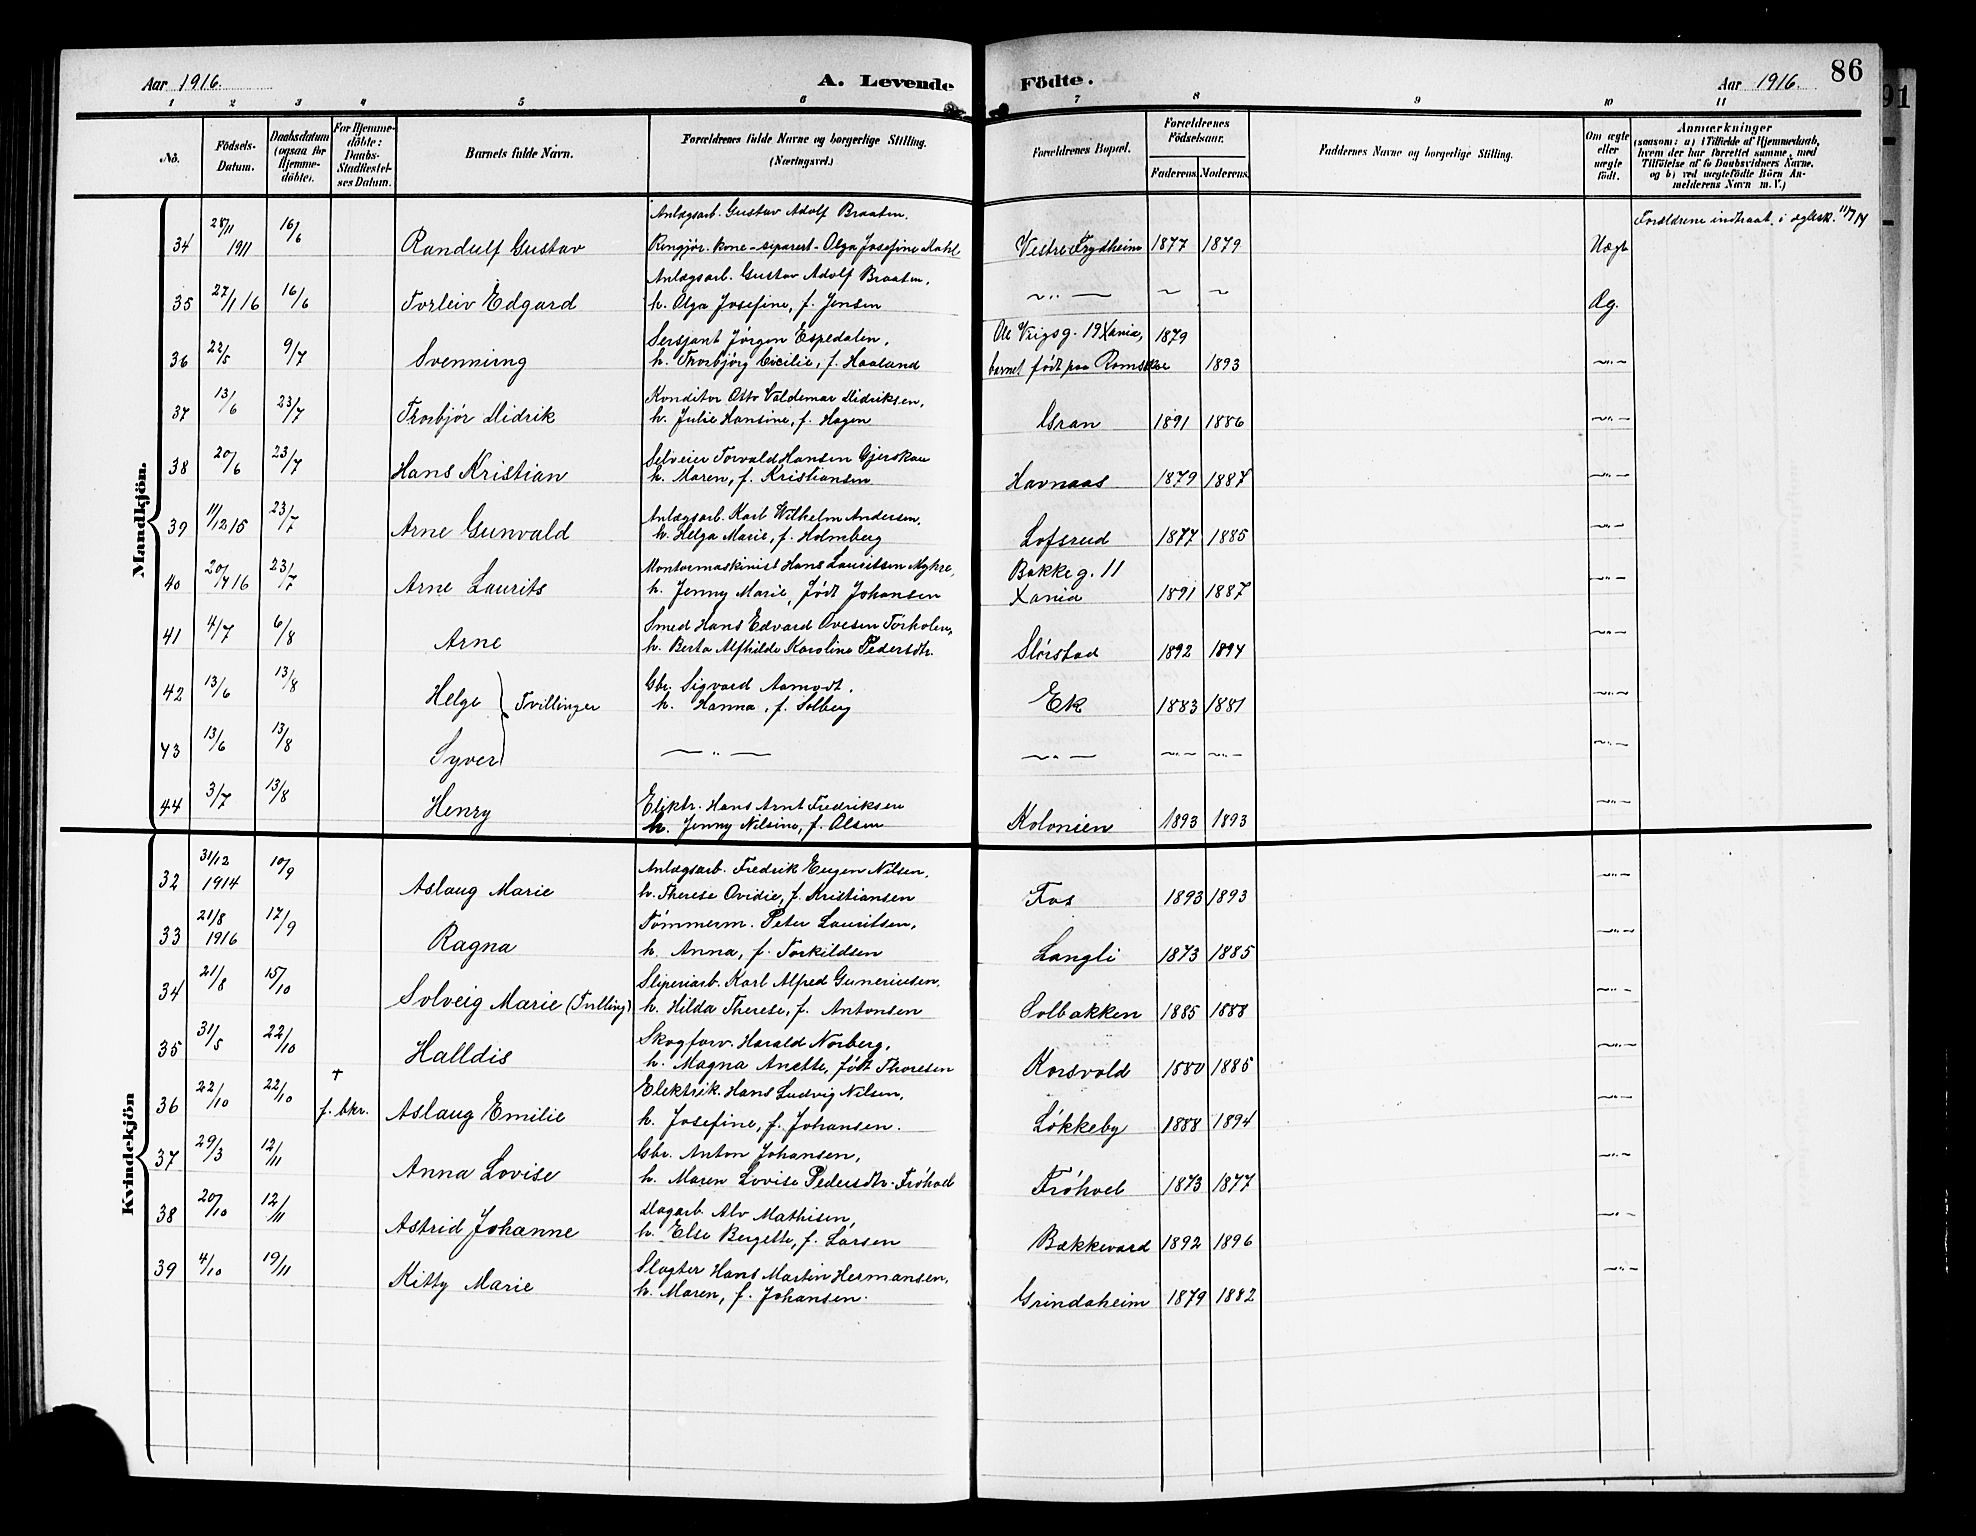 Aar 1916. A. Levende Födte. Aar 1916. 86
91
1 2 3 4 5 6 7 8 9 10 11
No. Födsels-Datum. Daabsdatum (ogsaa for Hjemmedöbte). For Hjemmedöbte: Daabs-Stadfæstelses Datum. Barnets fulde Navn. Forældrenes fulde Navne og borgerlige Stilling. (Næringsvei.) Forældrenes Bopæl. Forældrenes Födselsaar. Faderens. Moderens. Faddernes Navne og borgerlige Stilling. Om ægte eller uægte födt. Anmærkninger (saasom: a) i Tilfælde af Hjemmedaab, hvem der har forrettet samme, med Tilföielse af to Daabsvidners Navne, og b) ved uægtefödte Börn Anmelderens Navn m. V.)
Mandkjön.
28/11 16/6 Anlægsarb. Gustav Adolf Braaten, Forældrene indtraat. i ægtesk.
34 1911 Randulf Gustav Rengjør. kone - separert - Olga Josefine Dahl Vestre Frydheim 1877 1879 Uægt
Anlægsarb. Gustav Adolf Braaten,
35 27/1 16 16/6 Torleiv Edgard h. Olga Josefine, f. Jensen ~ " ~ ~ ~ Æg.
Sersjant Jørgen Espedalen, Ole Vigsg. 19 Xania, 1879
36 22/5 9/7 Svennung h. Thorbjörg Cecilie, f. Haaland barnet født paa Romskar 1893 ~"~
Konditor Otto Valdemar Didriksen,
37 13/6 23/7 Thorbjør Didrik h. Julie Hansine, f. Hagen Isran 1891 1886 ~"~
Selveier Torvald Hansen Gjerskau
38 20/6 23/7 Hans Kristian h. Maren, f. Kristiansen Havnaas 1879 1887 ~"~
Anlægsarb. Karl Wilhelm Andersen,
39 11/12 15 23/7 Arne Gunvald h. Helga Marie, f. Holmberg Lofsrud 1877 1885 ~"~
Montørmaskinist Hans Lauritsen Myhre, Bakkeg. 11
40 20/4 16 23/7 Arne Laurits h. Jenny Marie, født Johansen Xania 1891 1887 ~"~
Smed Hans Edvard Ovesen Torholen,
41 4/7 6/8 Arne h. Berta Alfhilde Karoline Pedersdtr. Slorstad 1892 1894 ~"~
Gbr. Sigvard Aamodt,
42 13/6 13/8 Helge } Tvillinger h. Hanna, f. Solberg Ek 1883 1881 ~"~
43 13/6 13/8 Syver ~ " ~ ~ " ~ ~"~ ~"~ ~"~
Elektr. Hans Arnt Fredriksen
44 3/7 13/8 Henry h. Jenny Nilsine, f. Olsen Kolonien 1893 1893 ~"~
Kvindekjön
31/12 10/9 Anlægsarb. Fredrik Eugen Nilsen,
32 1914 Aslaug Marie h. Therese Ovidie, f. Kristiansen Fos 1893 1893 ~"~
21/8 17/9 Tømmerm. Peter Lauritsen,
33 1916 Ragna h. Anna, f. Torkildsen Langli 1873 1885 ~"~
Sliperiarb. Karl Alfred Guneriusen,
34 21/8 15/10 Solveig Marie (Tvilling) h. Hilda Therese, f. Antonsen Solbakken 1885 1888 ~"~
Skogforv. Harald Norberg,
35 31/5 22/10 Halldis h. Magna Anette, født Thoresen Korsvold 1880 1885 ~"~
† Elektrik. Hans Ludvig Nilsen,
36 22/10 22/10 f. bkr. Aslaug Emilie h. Josefine, f. Johansen. Løkkeby 1888 1894 ~"~
Gbr. Anton Johansen,
37 29/3 12/11 Anna Lovise h. Maren Lovise Pedersdtr. Frøhoel Frøhoel 1873 1877 ~"~
Dagarb. Alv Mathisen,
38 20/10 12/11 Astrid Johanne h. Else Bergette, f. Larsen Bækkevard 1892 1896 ~"~
Slagter Hans Martin Hermansen,
39 4/10 19/11 Kitty Marie h. Maren, f. Johansen. Grindaheim 1879 1882 ~"~